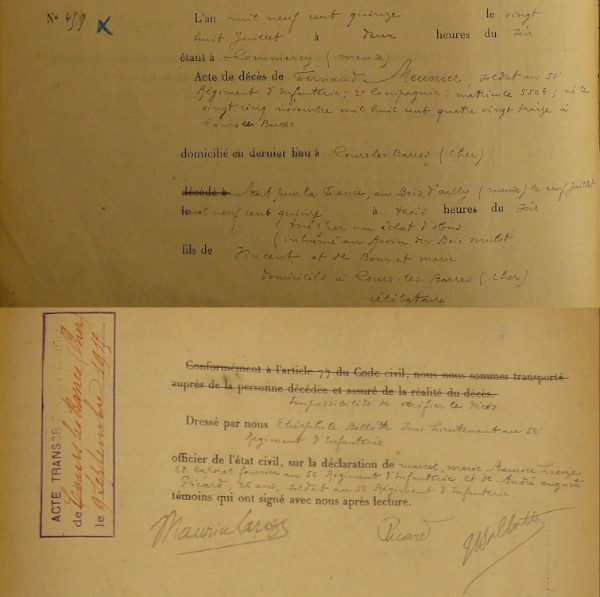 N° 459 L'an mil neuf cent quinze le vingt
huit Juillet à deux heures du soir
étant à Commercy (meuse)
Acte de décès de Fernand Meunier soldat au 56
Régiment d'Infanterie; 2e Compagnie; matricule 5506; né le
vingt cinq novembre mil huit cent quatre vingt treize à
Cours les Barres
domicilié en dernier lieu à Cours les Barres (Cher)
décédé à Mort pour la France, au Bois d'ailly (meuse) le neuf Juillet
mil neuf cent quinze à trois heures du soir
tué par un éclat d'obus
(inhumé au Ravin du Bois mulot
fils de Vincent et de Bonnet marie
domiciliés à Cours-les-Barres (Cher)
célibataire
Conformément à l'article 77 du Code civil, nous nous sommes transporté
auprès de la personne décédée et assuré de la réalité du décès.
Impossibilité de vérifier le décès
Dressé par nous Théophile Bollotte Sous Lieutenant au 56
Régiment d'Infanterie
officier de l'état civil, sur la déclaration de marcel, marie Maurice Laroze
22 caporal fourrier au 56 Régiment d'Infanterie et de André auguste
Picard, 26 ans, soldat au 56 Régiment d'Infanterie.
témoins qui ont signé avec nous après lecture.
Maurice Laroze Picard Bollotte
ACTE TRANSCR
de Cours les Barres (Cher)
le 9 Septembre 1915